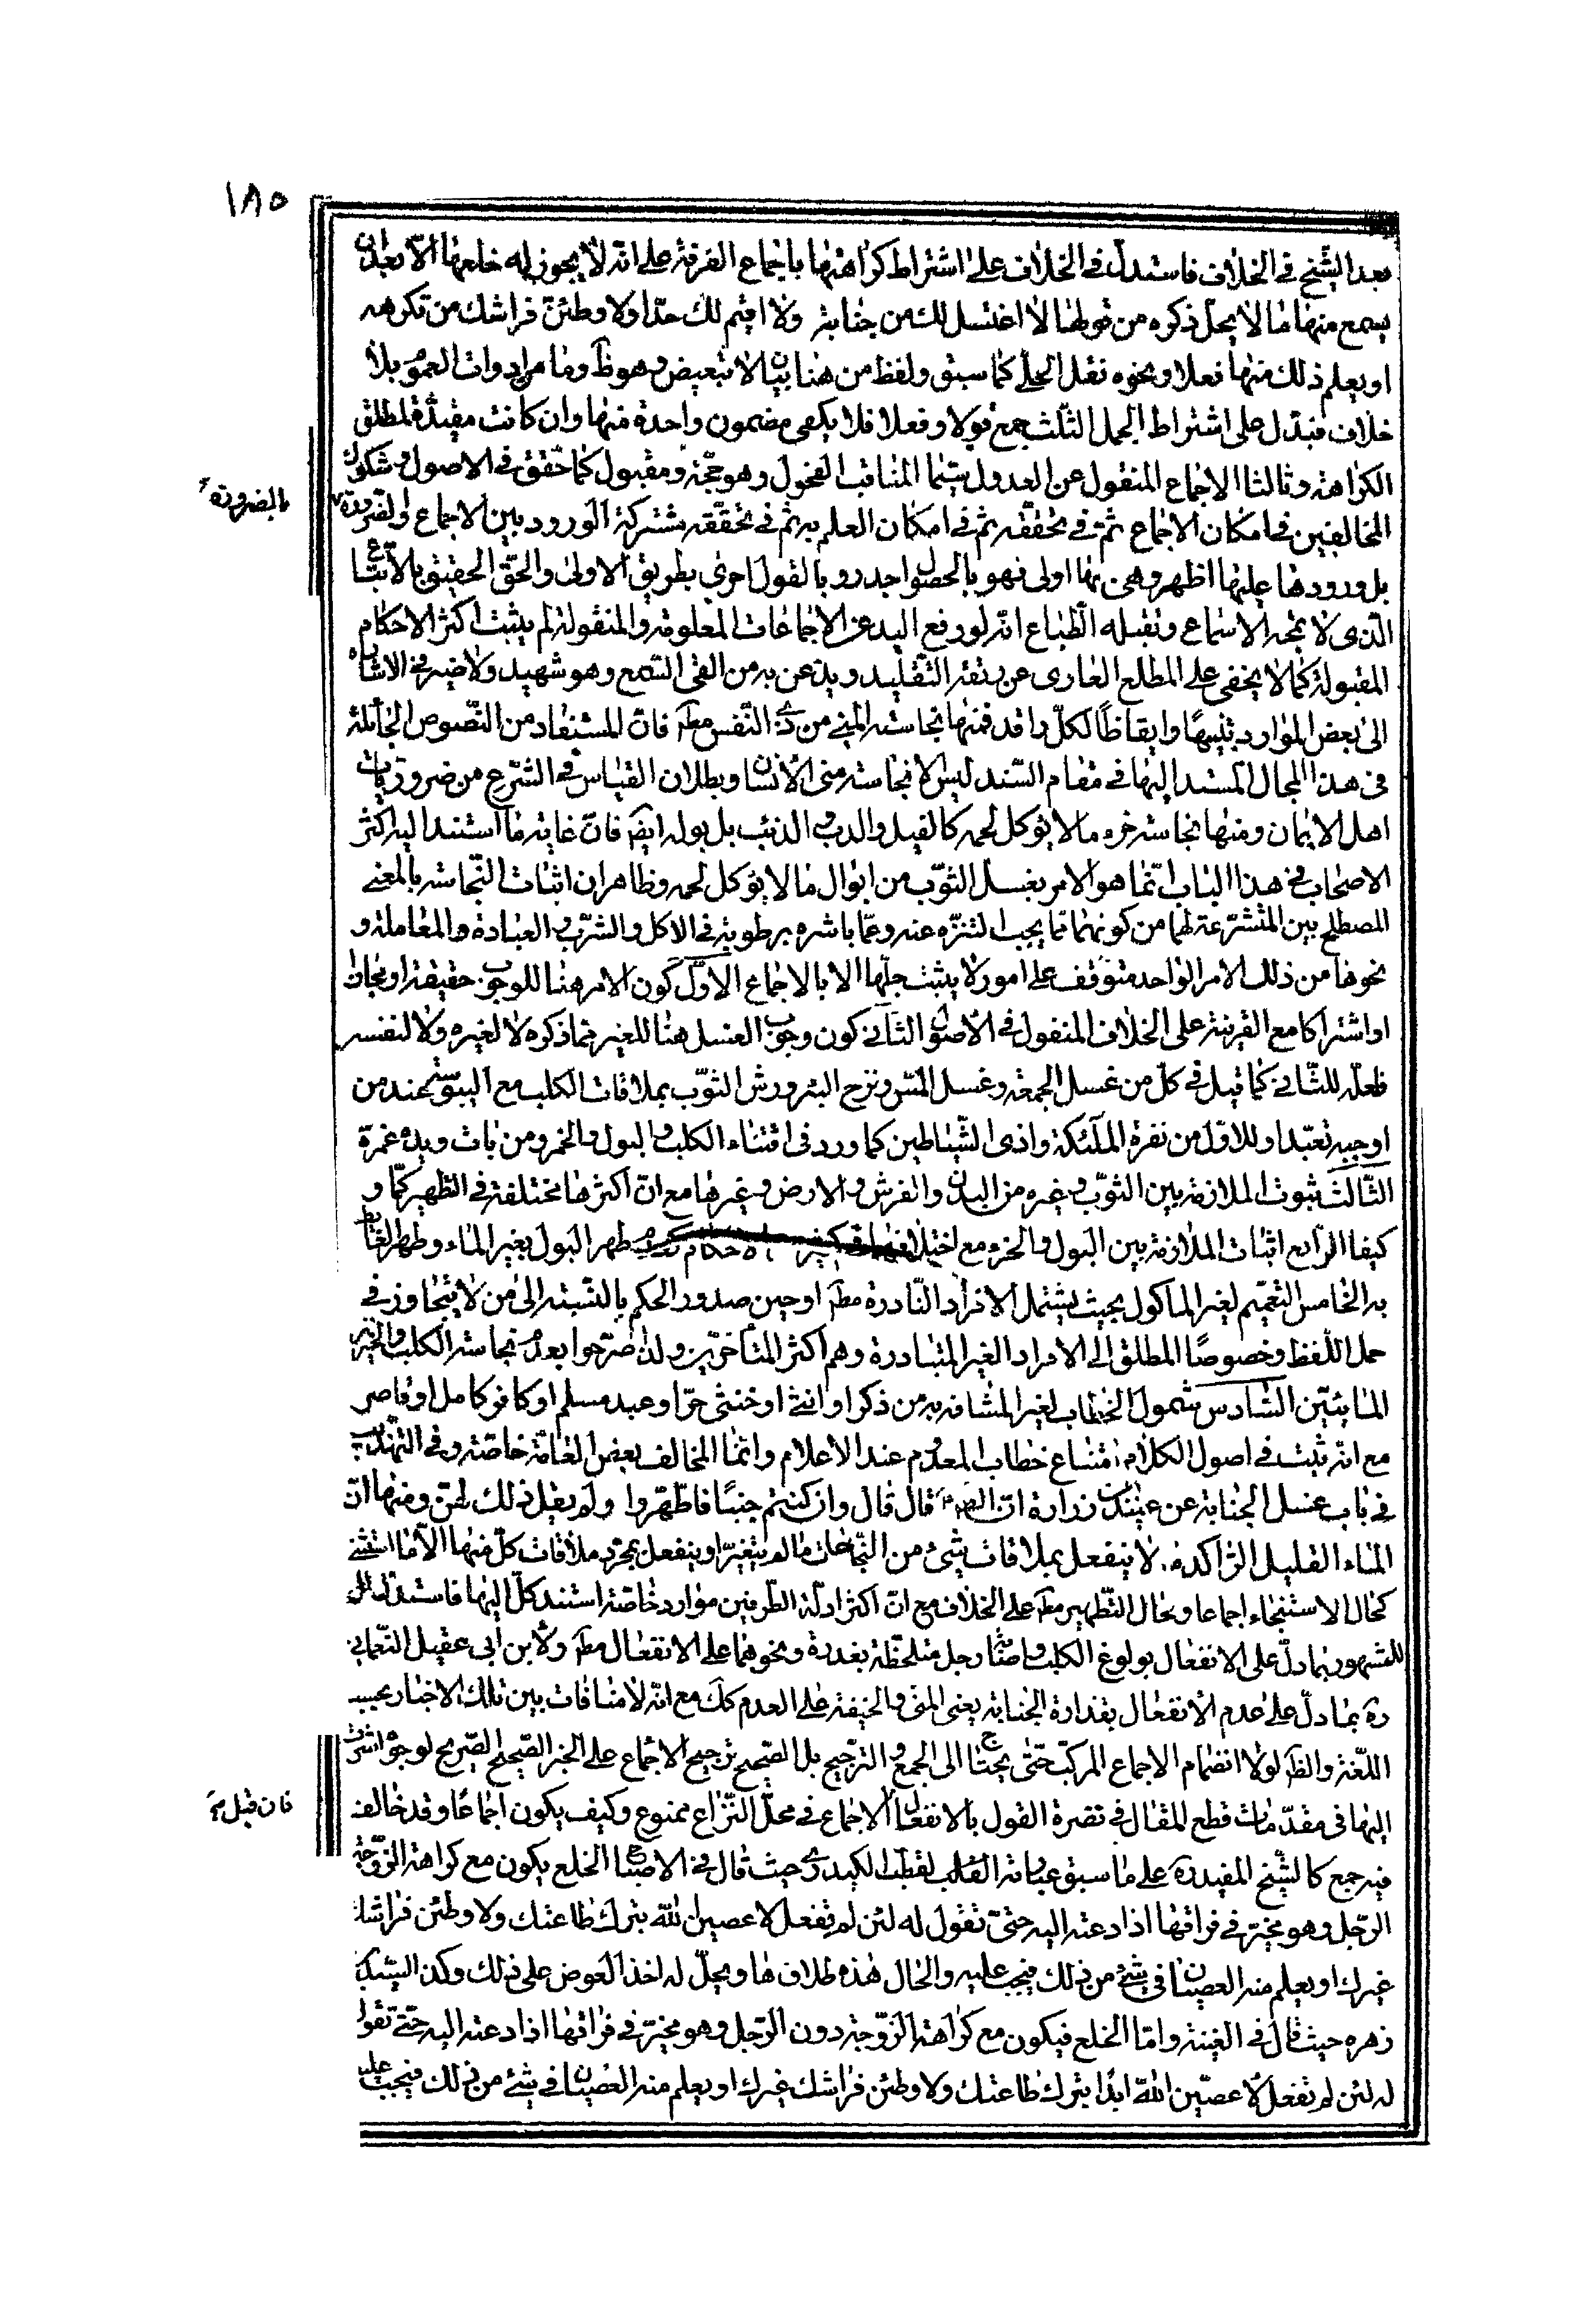 ١٨٥
بعد الشيخ في الخلاف فاستدل في الخلاف على اشتراط كراهتها باجماع الفرقة على انه لا يجوز له خلعها الا بعد ان
يسمع منها ما لا يحل ذكره من قولها لا اغتسل لك من جنابة ولا اقيم لك حدا ولا وطئن فراشك من تكرهه
او يعلم ذلك منها فعلا ونحوه نقل الحلي كما سبق ولفظ من هنا بيان لا تبعيض وهو ظ وما من ادوات العموم بلا
خلاف فيدل على اشتراط الجمل الثلث جمع قولا وفعلا فلا يكفي مضمون واحدة منها وان كانت مقيدة لمطلق
الكراهة وثالثا الاجماع المنقول عن العدول سيما المناقب الفحول وهو حجة ومقبول كما حقق في الاصول وشكوك
المخالفين في امكان الاجماع ثم في تحققه ثم في امكان العلم به ثم في تحققه مشتركة الورود بين الاجماع والضرورة
بالضرورة
بل ورودها عليها اظهر وهي بها اولى فهو بالحصول اجدر وبالقول احرى بطريق الاولى والحق الحقيق بالاتباع
الذى لا تمجه الاسماع وتقبله الطباع انه لو رفع اليد عن الاجماعات المعلومة والمنقولة لم يثبت اكثر الاحكام
المقبولة كما لا يخفى على المطلع العارى عن ربقة التقليد ويذعن به من القى السمع وهو شهيد ولا ضير في الاشارة
الى بعض الموارد تنبيها وايقاظا لكل راقد فمنها نجاسة المني من ذى النفس مط فان المستفاد من النصوص الجائلة
في هذا المجال المستند اليها في مقام السند ليس الا نجاسة منى الانسان وبطلان القياس في الشرع من ضروريات
اهل الايمان ومنها نجاسة خرء ما لا يؤكل لحمه كالفيل والدب والذئب بل بوله ايض فان غاية ما استند اليه اكثر
الاصحاب في هذا الباب انما هو الامر بغسل الثوب من ابوال ما لا يؤكل لحمه وظاهر ان اثبات النجاسة بالمعنى
المصطلح بين المتشرعة لهما من كونهما مما يجب التنزه عنه وعما باشره برطوبة في الاكل والشرب والعبادة والمعاملة و
نحوها من ذلك الامر الواحد متوقف على امور لا يثبت جلها الا بالاجماع الاول كون الامر هنا للوجوب حقيقة او مجازا
او اشتراكا مع القرينة على الخلاف المنقول في الاصول الثاني كون وجوب الغسل هنا للغير مما ذكره لا لغيره ولا لنفسه
فلعله للثاني كما قيل في كل من غسل الجمعة وغسل المس ونزح البئر ورش الثوب بملاقات الكلب مع اليبوسة عند من
اوجبه تعبدا وللاول من نفرة الملئكة واذى الشياطين كما ورد في اقتناء الكلب والبول والخمر ومن بات ويده غمرة
الثالث ثبوت الملازمة بين الثوب وغيره من البدن والفرش والارض وغيرها مع ان اكثرها مختلفة في التطهير كما و
كيفا الرابع اثبات الملازمة بين البول والخرء مع اختلافهما في كثير احكام طهر البول بغير الماء وطهر الغائط
به الخامس التعميم لغير الماكول بحيث يشتمل الافراد النادرة مط او حين صدور الحكم بالنسبة الى من لا يتجاوز في
حمل اللفظ وخصوصا المطلق الى الافراد الغير المتبادرة وهم اكثر المتأخرين ولذا صرحوا بعدم نجاسة الكلب والخنزير
المائيين السادس شمول الخطاب لغير المشافه به من ذكر او انثى او خنثى حر او عبد مسلم او كافر كامل او قاصر
مع انه ثبت في اصول الكلام امتناع خطاب المعدوم عند الاعلام وانما المخالف بعض العامة خاصة وفي التهذيب
في باب غسل الجنابة عن عبيد بن زرارة ان قال قال وان كنتم جنبا فاطهروا ولم يقل ذلك لهن ومنها ان
الماء القليل الراكد لا ينفعل بملاقات شيء من النجاسات ما لم يتغير او ينفعل بمجرد ملاقات كل منها الا ما استثني
كحال الاستنجاء اجماعا وحال التطهير مط على الخلاف مع ان اكثر ادلة الطرفين موارد خاصة استند كل اليها فاستدل
للمشهور بما دل على الانفعال بولوغ الكلب واصابة رجل متلطخة بعذرة ونحوهما على الانفعال مط ولابن ابي عقيل النعماني
ره بما دل على عدم الانفعال بقذارة الجنابة يعنى المنى والجيفة على العدم كك مع انه لا منافات بين تلك الاخبار بحسب
اللغة والظ لولا انضمام الاجماع المركب حتى يحتاج الى الجمع والترجيح بل الصحيح ترجيح الاجماع على الخبر الصحيح الصريح لوجوه اشرت
اليها في مقدمات قطع المقال في نصرة القول بالانفعال الاجماع في محل النزاع ممنوع وكيف يكون اجماعا وقد خالف
فان قيل
فيه جمع كالشيخ المفيد ره على ما سبق عبارته القطب الكيدري حيث قال في الاصباح الخلع يكون مع كراهة الزوجة
الرجل وهو مخير في فراقها اذا دعته اليه حتى تقول له لئن لم تفعل لاعصين الله بترك طاعتك ولاوطئن فراشك
غيرك او يعلم منه العصيان في شئ من ذلك فيجب عليه والحال هذه طلاقها ويحل له اخذ العوض على ذلك وكذا السيد
زهره حيث قال في الغنية واما الخلع فيكون مع كراهة الزوجة دون الرجل وهو مخير في فراقها اذا دعته اليه حتى تقول
له لئن لم تفعل لاعصين الله ابدا بترك طاعتك ولاوطئن فراشك غيرك او يعلم منه العصيان في شئ من ذلك فيجب عليه